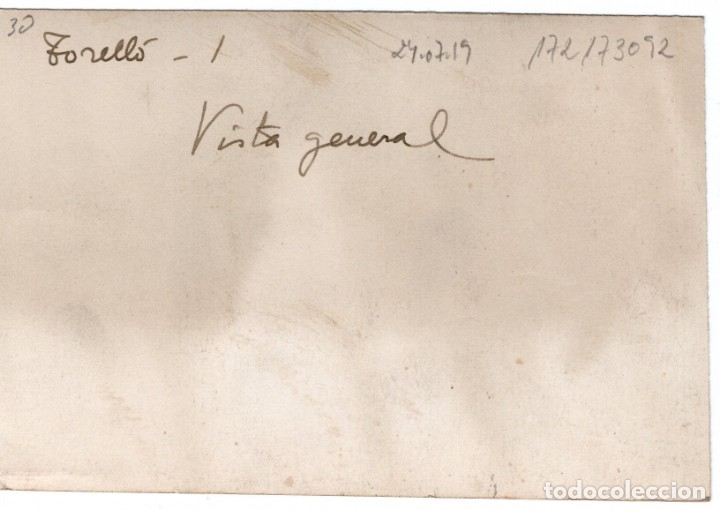 30
Torelló - 1
24.07.19
172173092
Vista general
todocoleccion